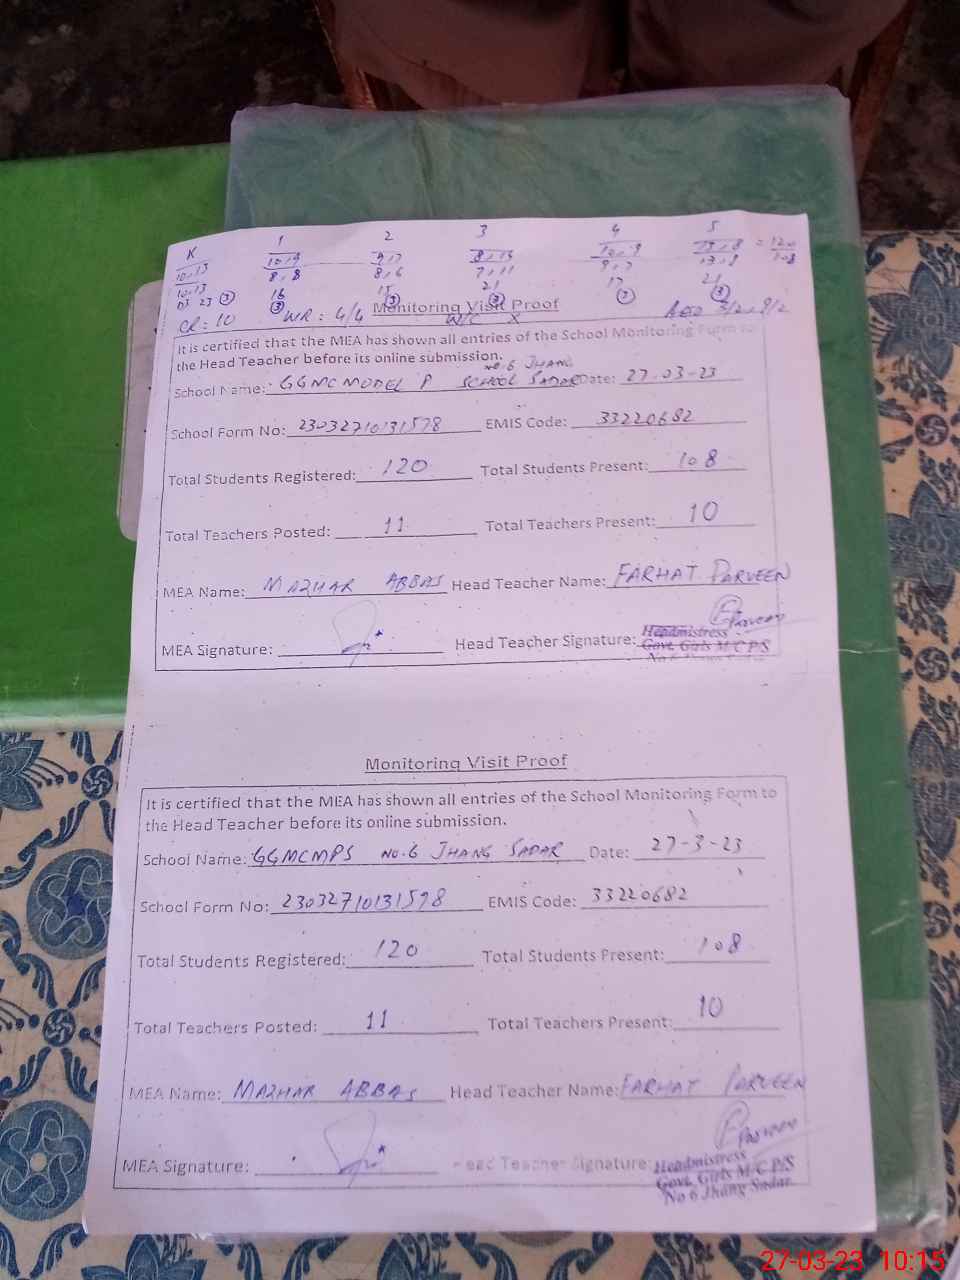 K 1 2 3 4 5
10,13 10,9 9,7 8,13 10,9 13,8 = 120
10,13 8,8 8,6 7,11 9,7 13,8 108
23 16 15 21 17 21
CR: 10 WR: 4/4 Monitoring Visit Proof
W/C X
It is certified that the MEA has shown all entries of the School Monitoring Form to
the Head Teacher before its online submission.
No. 6 JHANG
School Name: GGMC MODEL P SCHOOL SADAR Date: 27-03-23
School Form No: 23032710131598 EMIS Code: 33220682
Total Students Registered: 120 Total Students Present: 108
Total Teachers Posted: 11 Total Teachers Present: 10
MEA Name: MAZHAR ABBAS Head Teacher Name: FARHAT PARVEEN
MEA Signature: Head Teacher Signature: Parveen
Headmistress
Govt. Girls M/C P/S
No 6 Jhang Sadar
Monitoring Visit Proof
It is certified that the MEA has shown all entries of the School Monitoring Form to
the Head Teacher before its online submission.
School Name: GGMCMPS NO.6 JHANG SADAR Date: 27-3-23
School Form No: 23032710131598 EMIS Code: 33220682
Total Students Registered: 120 Total Students Present: 108
Total Teachers Posted: 11 Total Teachers Present: 10
MEA Name: MAZHAR ABBAS Head Teacher Name: FARHAT PARVEEN
MEA Signature: Head Teacher Signature: Parveen
Headmistress
Govt. Girls M/C P/S
No 6 Jhang Sadar
27-03-23 10:15